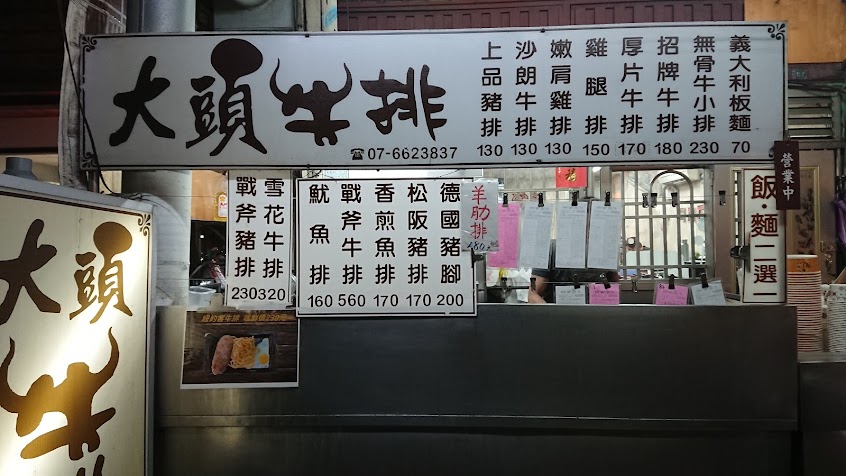 大頭牛排
☎07-6623837
上品豬排 130
沙朗牛排 130
嫩肩雞排 130
雞腿排 150
厚片牛排 170
招牌牛排 180
無骨牛小排 230
義大利板麵 70
營業中
戰斧豬排 230
雪花牛排 320
魷魚排 160
戰斧牛排 560
香煎魚排 170
松阪豬排 170
德國豬腳 200
羊肋排
飯·麵二選一
大頭牛排